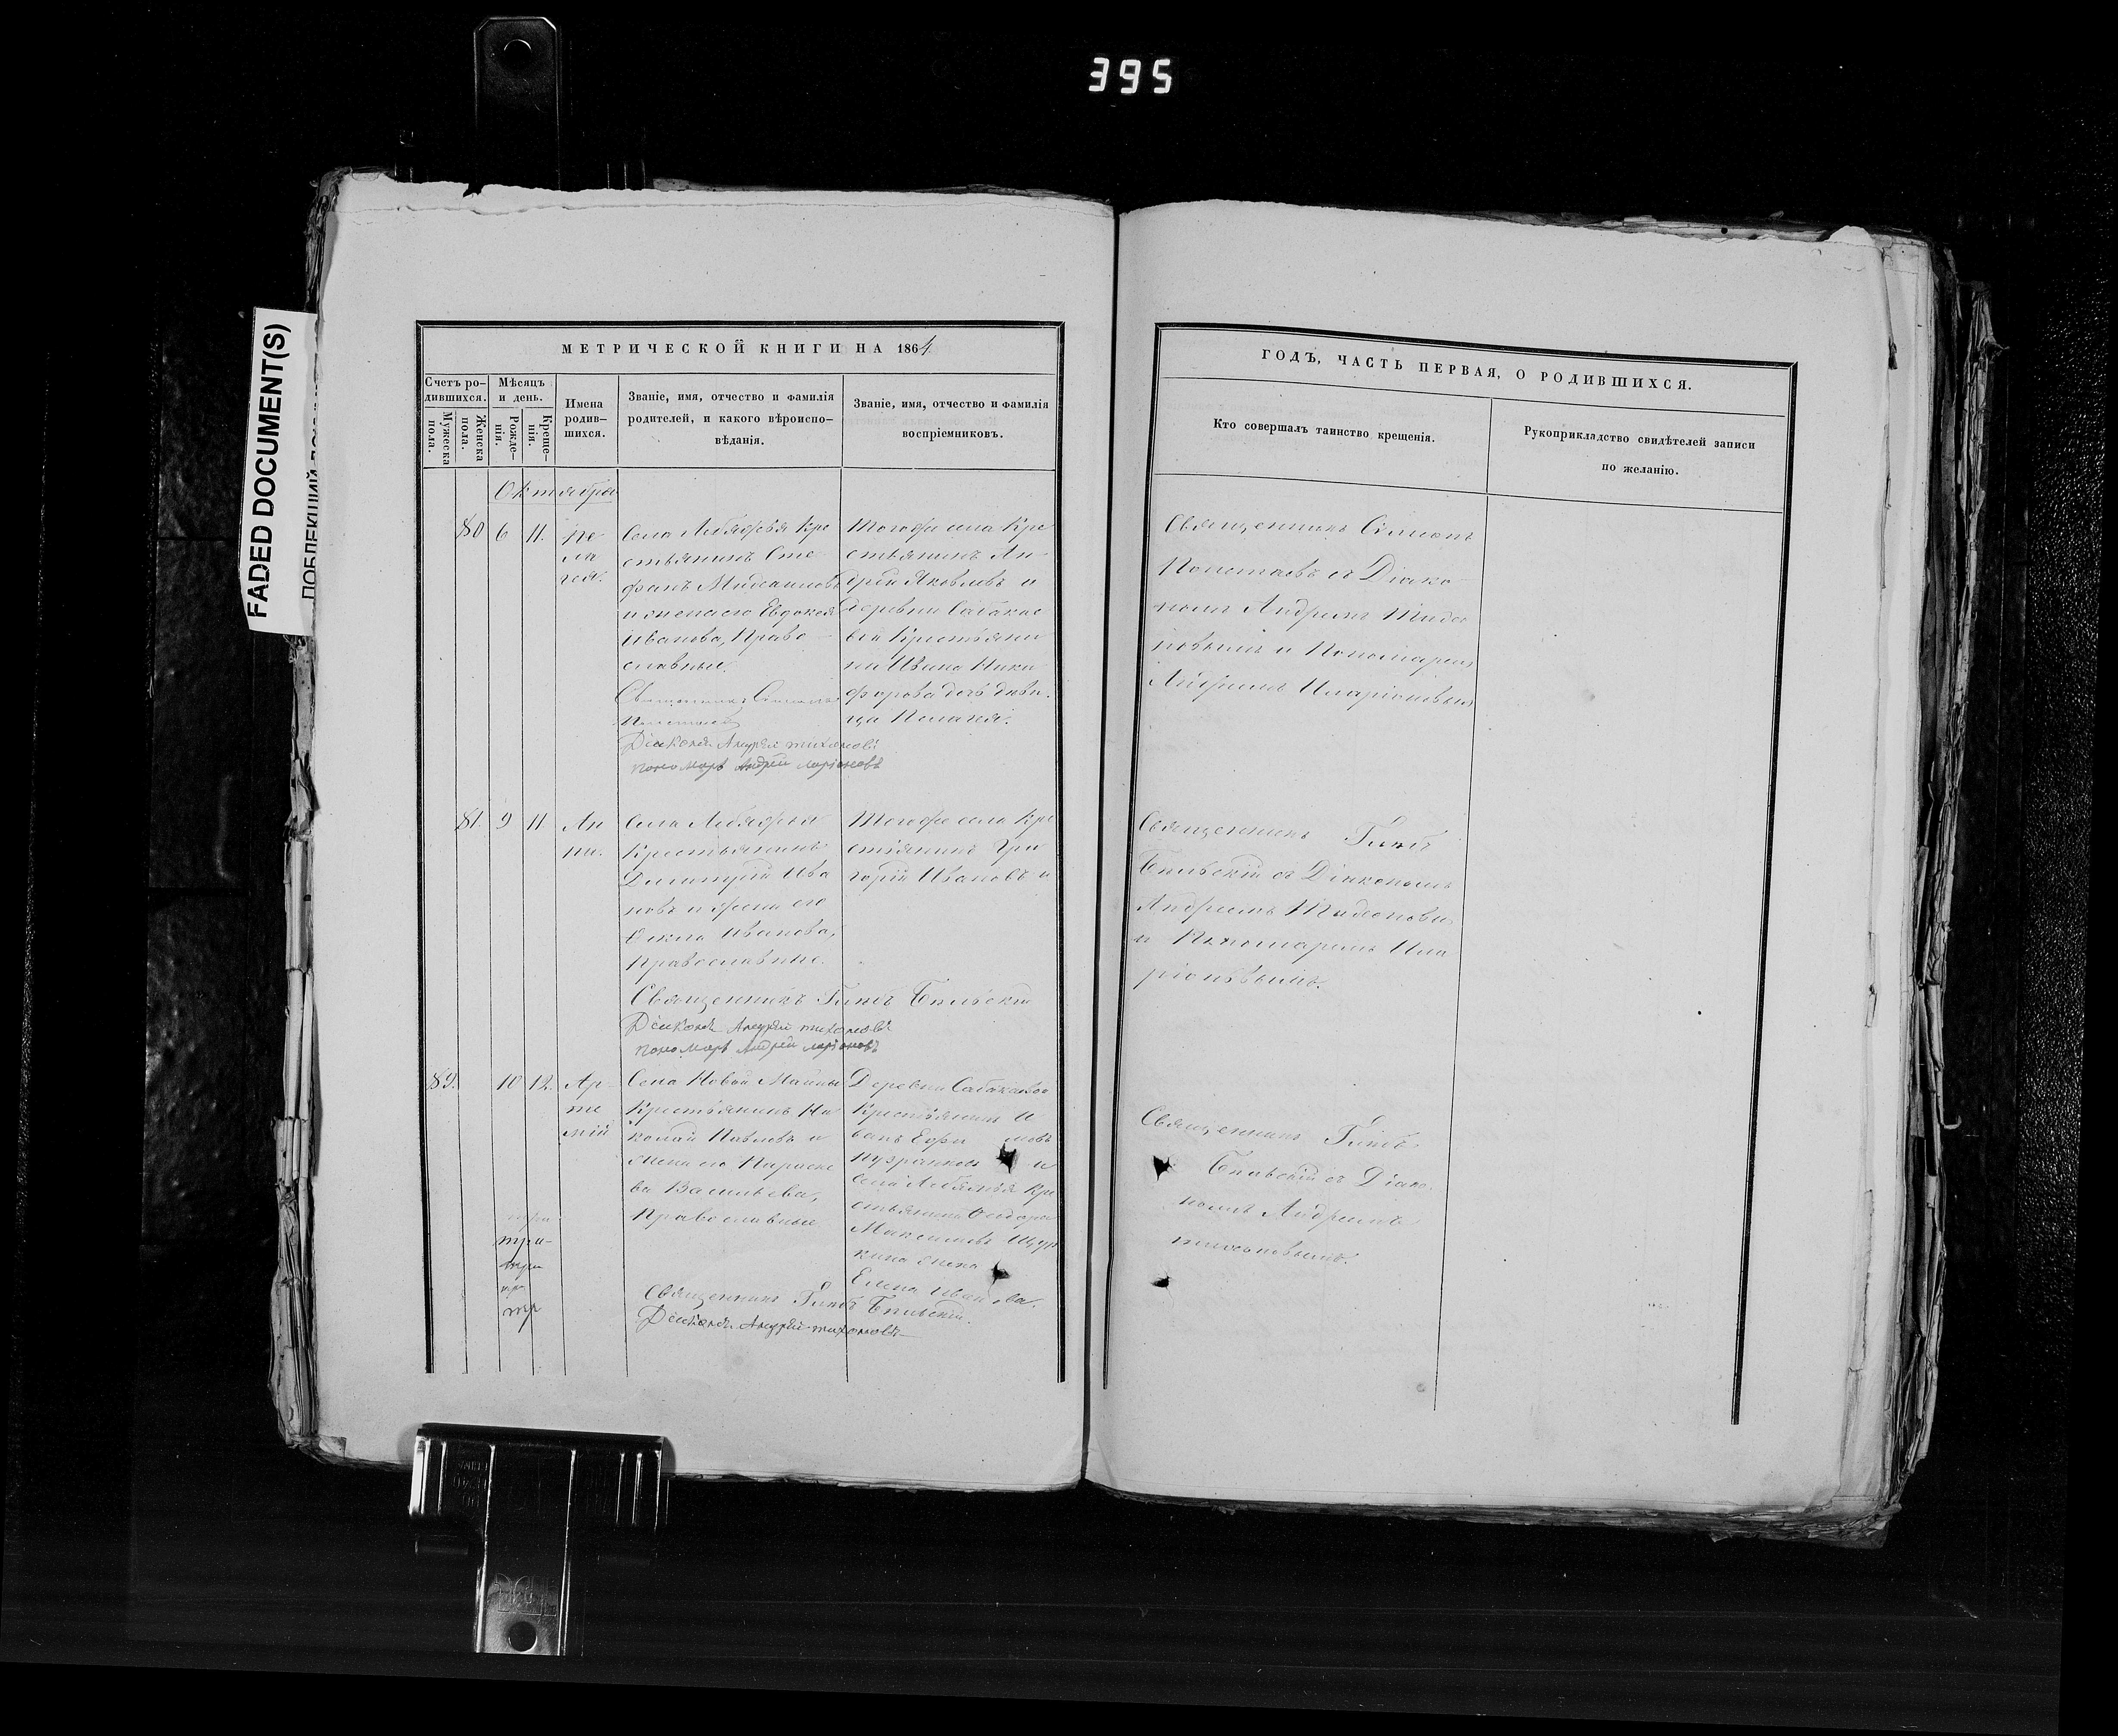 395
FADED DOCUMENT(S)
МЕТРИЧЕСКОЙ КНИГИ НА 1864
Счетъ ро-
дившихся.
Мужеска
пола.
Женска
пола.
Мѣсяцъ
и день.
Рожде-
нія.
Креще-
нія.
Имена
родив-
шихся.
Званіе, имя, отчество и фамилія
родителей, и какого вѣроиспо-
вѣданія.
Званіе, имя, отчество и фамилія
воспріемниковъ.
Октября
80 6 11.
Пе
ла
гея.
Села Лебяжья Кре
стьянинъ Сте
фанъ
и жена его Евдокея
Иванова, Право
славные.
Священникъ
Діаконъ Андрей тихоновъ
пономарь Андрей ларіоновъ
Тогоже села Кре
стьянинъ Ан
дрей Яковлевъ и
деревни
Крестьяни
на Ивана Ники
форова дочь деви
ца Пелагея.
81. 9 11
Ан
на.
Села Лебяжья
Крестьянинъ
Димитрій Ива
новъ и жена его
Фекла Иванова,
Православные.
Священникъ Глебъ Бельскій
Діаконъ Андрей тихоновъ
пономарь Андрей ларіоновъ
Тогоже села Кре
стьянинъ Гри
горій Ивановъ и
89. 10 12.
Ар
те
мій
Села Новой Майны
Крестьянинъ Ни
колай Павловъ и
жена его Параске
ва Васильева,
Православные
Деревни
Крестьянинъ И
ванъ
и
села Лебяжья Кре
стьянина Федора
Максимова
жена
Елена Иванова.
три-
тр
Священникъ Глебъ Бельскій.
Діаконъ Андрей тихоновъ
ГОДЪ, ЧАСТЬ ПЕРВАЯ, О РОДИВШИХСЯ.
Кто совершалъ таинство крещенія.
Рукоприкладство свидѣтелей записи
по желанію.
Священникъ Симеонъ
съ Діако
номъ Андреемъ Тихо
новымъ и Пономаремъ
Андреемъ Иларіоновымъ
Священникъ Глебъ
Бельскій съ Діакономъ
Андреемъ Тихоновы
и Пономаремъ Ила
ріоновымъ.
Священникъ Глебъ
Бельскій съ Діако
номъ Андреемъ
тихоновымъ.